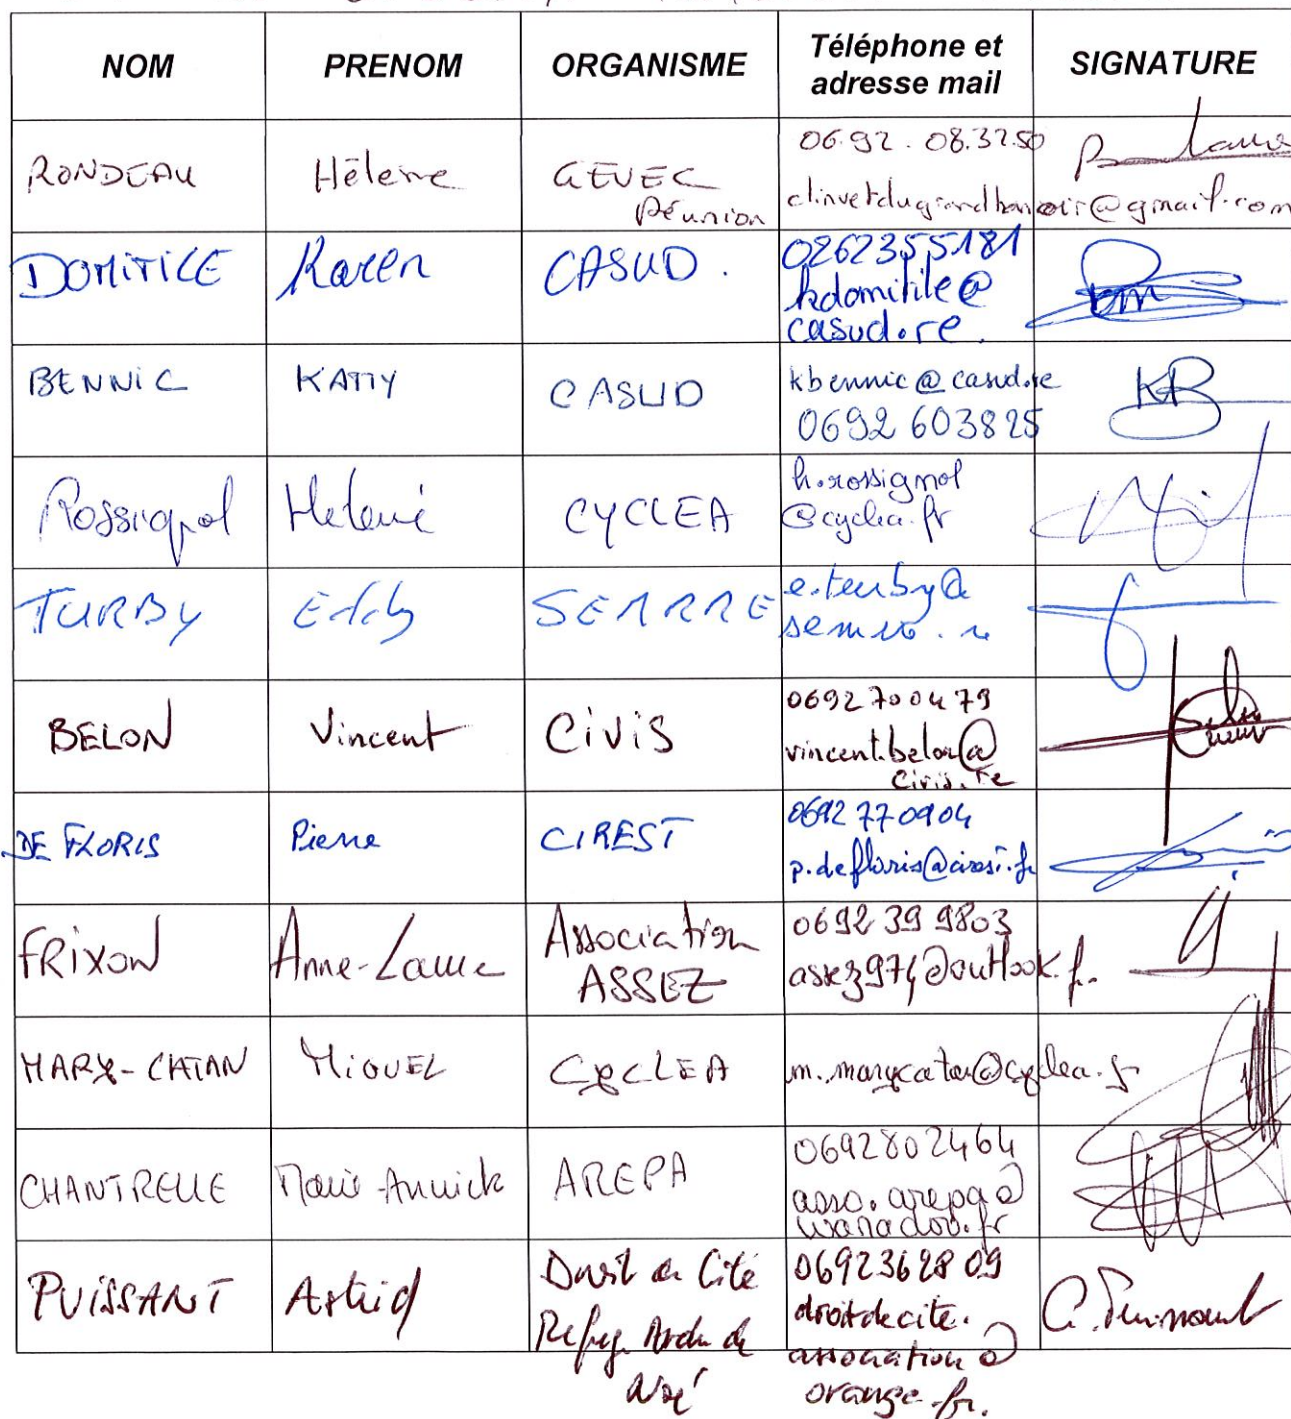 NOM PRENOM ORGANISME Téléphone et adresse mail SIGNATURE
RONDEAU Hélène GEVEC Réunion 06.92.08.32.50
clinvetdugrandbanoir@gmail.com
DOMITILE Karen CASUD. 0262355181
kdomitile@
casud.re.
BENNIC KATTY CASUD kbennic@casud.re
0692 603825 KB
Rossignol Hélène CYCLEA h.rossignol
@cyclea.fr
TURBY Eddy SEMRRE e.turby@
BELON Vincent CiViS 0692700479
vincent.belon@
civis.re
DE FLORIS Pierre CIREST 0692 770904
p.defloris@cirest.fr
FRIXON Anne-Laure Association
ASSEZ 0692 39 9803
assez974@outlook.fr
MARY-CATAN MiGUEL CYCLEA m.marycatan@cyclea.fr
CHANTRELLE Marie-Annick AREPA 0692802464
asso.arepa@
wanadoo.fr
PUISSANT Astrid Droit de Cité
Refuge Arche de
Noé 0692362809
droitdecite.
association@
orange.fr. A. Puissant